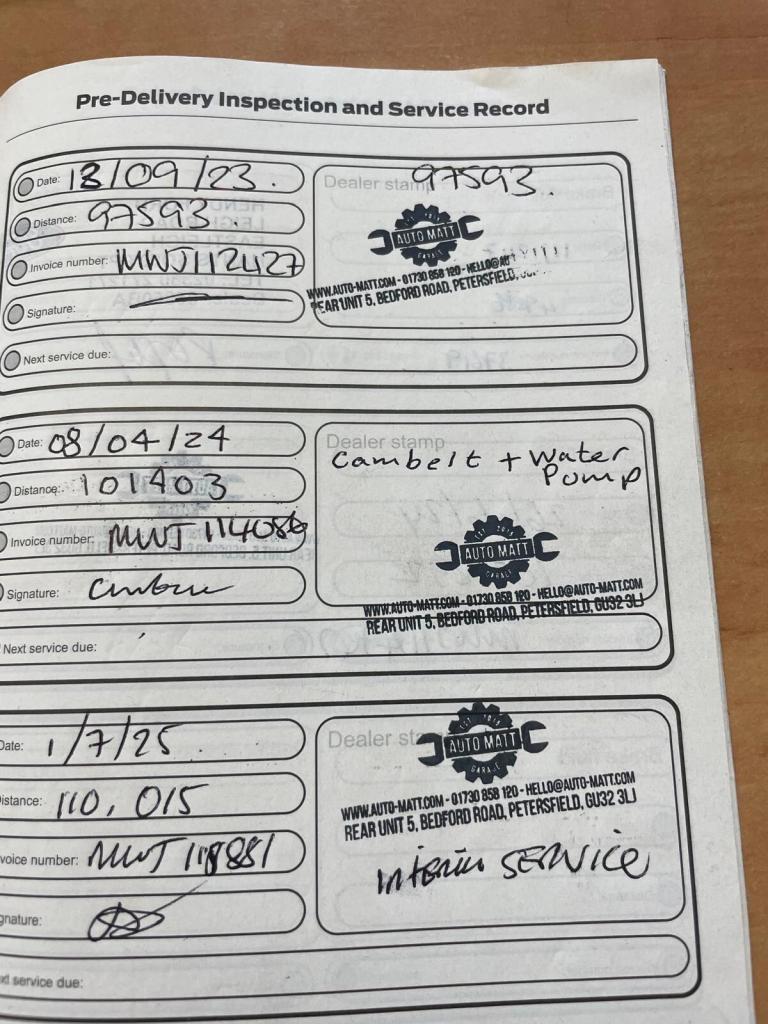 Pre-Delivery Inspection and Service Record
Date: 13/09/23.
Dealer stamp 97593.
Distance: 97593.
AUTO MATT
Invoice number: MWJ112427
WWW.AUTO-MATT.COM - 01730 858 120 - HELLO@AUT
REAR UNIT 5, BEDFORD ROAD, PETERSFIELD,
Signature:
Next service due:
Date: 08/04/24
Dealer stamp
Cambelt + Water
Pump
Distance: 101403
Invoice number: MWJ 114086
EST 2018
AUTO MATT
GARAGE
Signature:
WWW.AUTO-MATT.COM - 01730 858 120 - HELLO@AUTO-MATT.COM
REAR UNIT 5, BEDFORD ROAD, PETERSFIELD, GU32 3LJ
Next service due:
Date: 1/7/25
Dealer
AUTO MATT
GARAGE
Distance: 110,015
WWW.AUTO-MATT.COM - 01730 858 120 - HELLO@AUTO-MATT.COM
REAR UNIT 5, BEDFORD ROAD, PETERSFIELD, GU32 3LJ
voice number: MWJ 118881
interim SERVICE
gnature:
service due: